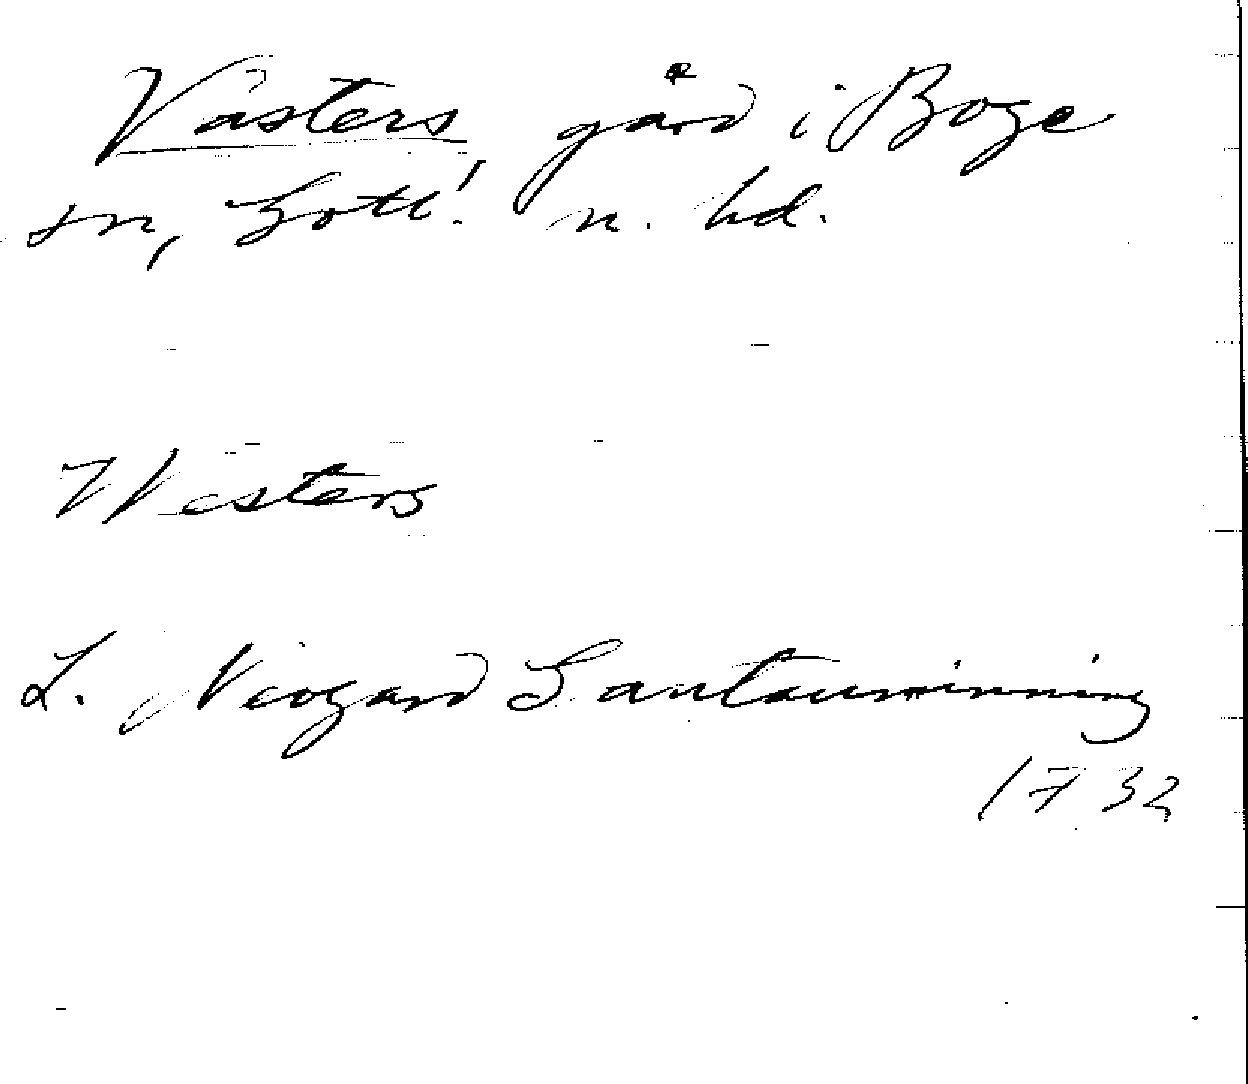 Västers gård i Boge
sn, Gotl. n. hd.
Westers
L. Neogard Gautauminning
1732